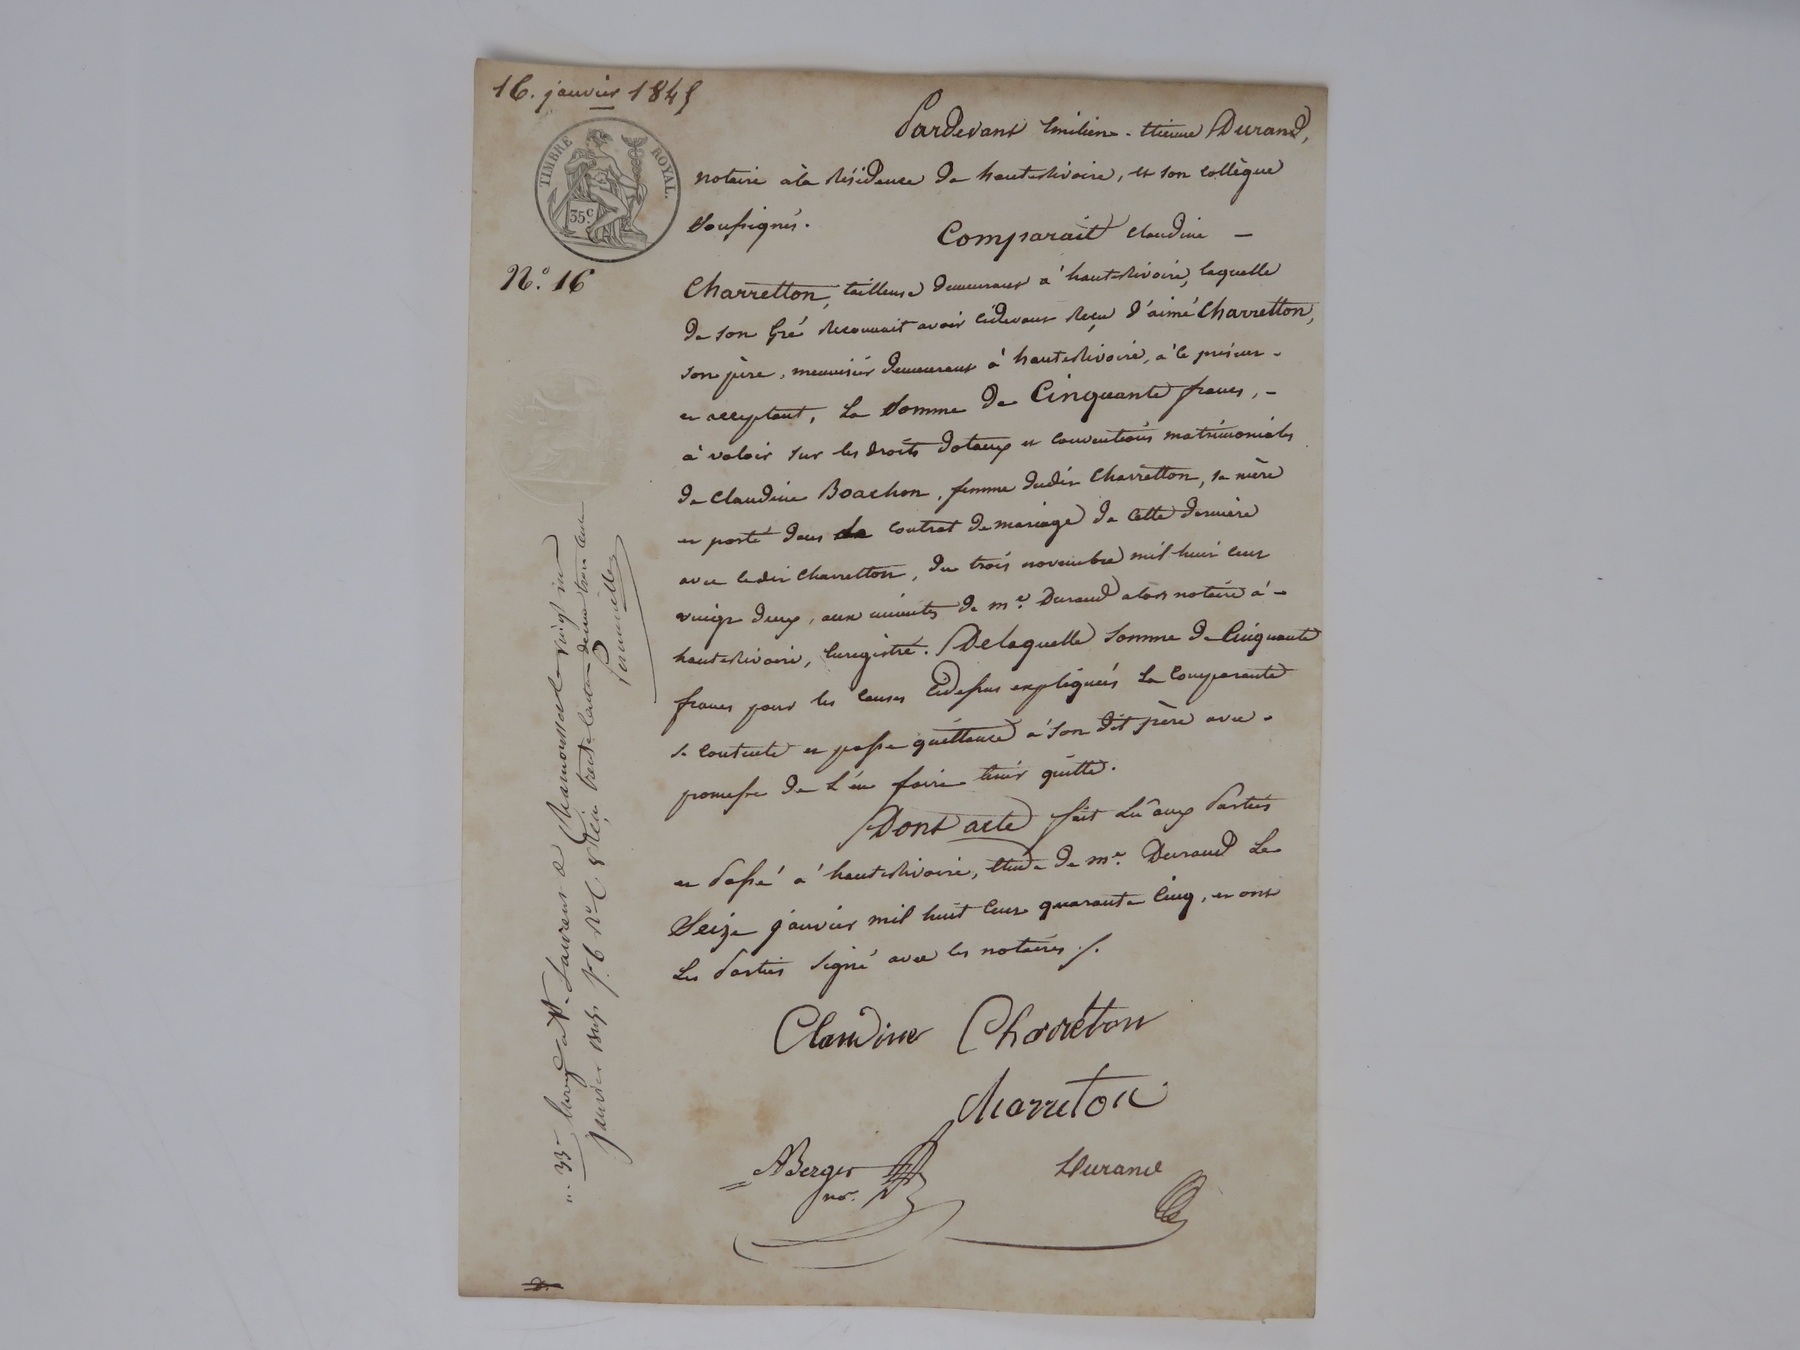 16. janvier 1845
TIMBRE ROYAL.
35c.
N.º 16
Pardevant Emilien - Etienne Durand,
notaire à la résidence de hauterivoire, et son collègue
soussignés.
Comparait Claudine —
Charretton, tailleuse demeurant à hauterivoire, laquelle
de son gré reconnait avoir cidevant reçu d'aimé Charretton,
son père, menuisier demeurant à hauterivoire, à ce présent -
et acceptant, la somme de Cinquante francs, -
à valoir sur les droits dotaux et conventions matrimoniales
de Claudine Boachon, femme dudit Charretton, sa mère
et porté dans le contrat de mariage de cette dernière
avec ledit Charretton, du trois novembre mil huit cent
vingt deux, aux minutes de me. Durand alors notaire à -
hauterivoire, Enregistré. De laquelle somme de Cinquante
francs pour les causes cidessus expliquées la comparante
se contente et passe quittance à son dit père avec -
promesse de l'en faire tenir quitte.
Dont acte fait lu aux Parties
et Passé à hauterivoire, étude de me. Durand le
Seize janvier mil huit cent quarante cinq, et ont
les Parties signé avec les notaires ./.
Claudine Charreton
Charreton
ABerger
nore.
Durand
n. 33 Enregé à St. Laurent de Chamousset le vingt
janvier 1845 fo. 6 Ro. C. 8 Reçu